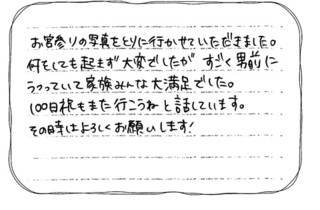 お宮参りの写真をとりに行かせていただきました。
何をしても起きず大変でしたが すごく男前に
うつっていて家族みんな大満足でした。
100日祝もまた行こうねと話しています。
その時はよろしくお願いします!